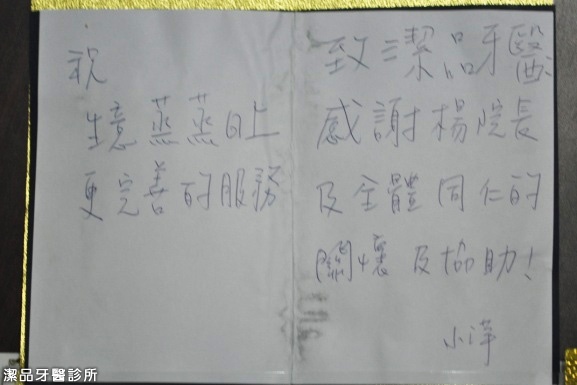 致：潔品牙醫
感謝楊院長
及全體同仁的
關懷及協助！
小萍
祝
生意蒸蒸日上
更完善的服務
潔品牙醫診所